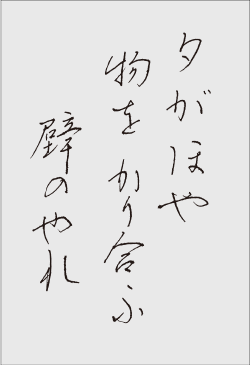 夕がほや
物をかり合ふ
壁のやれ